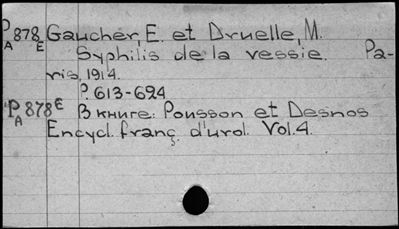 P 878 Gaucher, E. et Druelle, M.
A E Syphilis de la vessie. Pa-
ris, 1914.
P. 613-624
P 878 E В книге: Pousson et Desnos
A Encycl. franç. d'urol. Vol. 4.